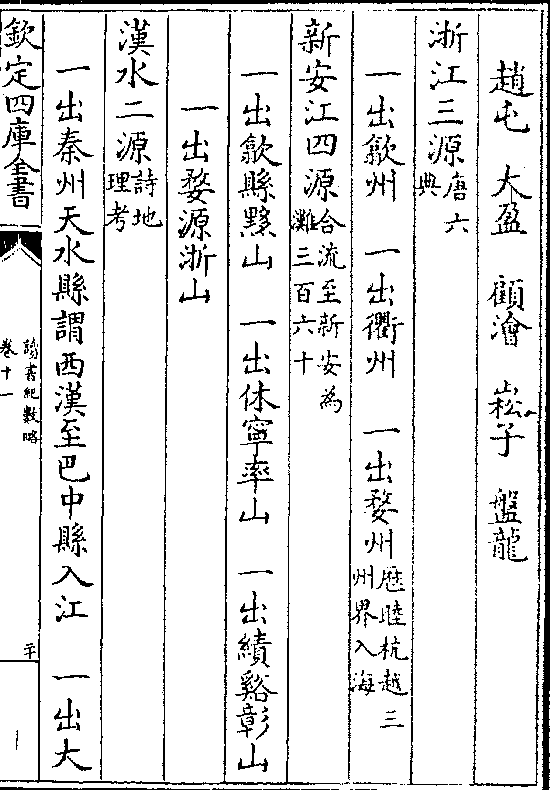 趙屯　大盈　顧澮　崧子　盤龍
浙江三源唐六典
一出歙州　一出衢州　一出婺州歴睦杭越三州界入海
新安江四源合流至新安為灘三百六十
一出歙縣黟山　一出休寧率山　一出績谿彰山
一出婺源浙山
漢水二源詩地理考
一出秦州天水縣謂西漢至巴中縣入江　一出大
欽定四庫全書
讀書紀數略
卷十一